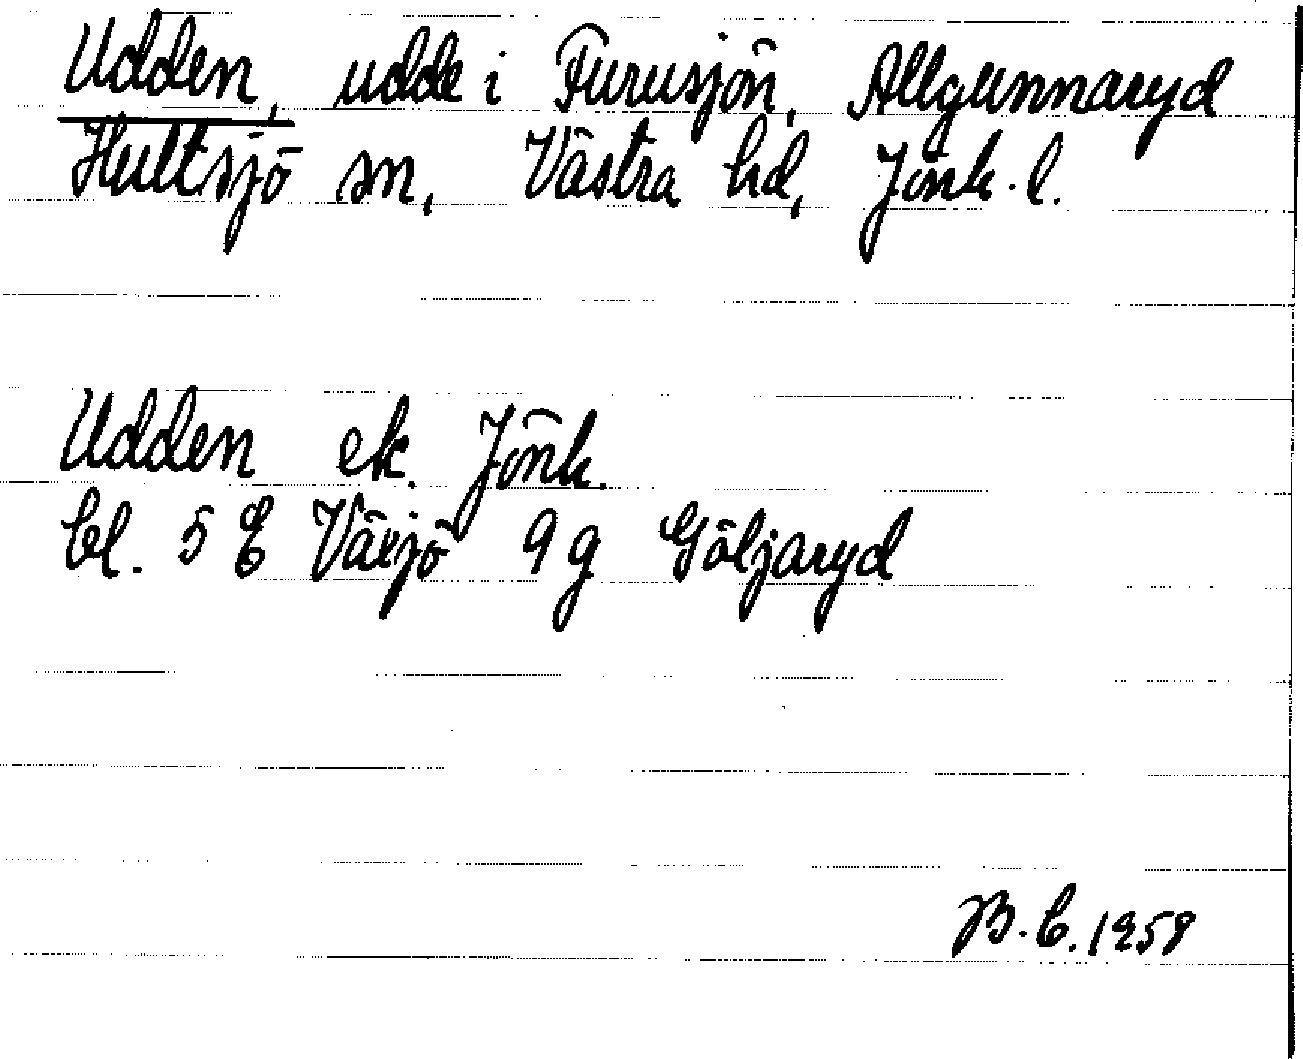 Udden, udde i Furusjön, Allgunnaryd
Hultsjö sn, Västra hd, Jönk. l.
Udden ek. Jönk.
bl. 5 E Växjö 9 g Göljaryd
B. C. 1959